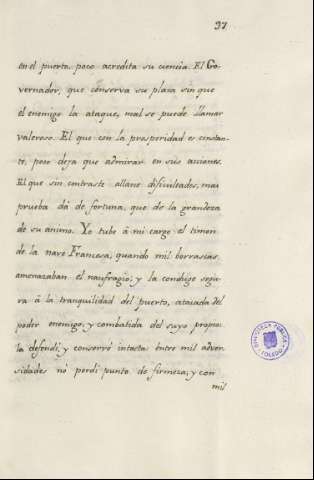 37
en el puerto, poco acredita su ciencia. El Go-
vernador, que conserva su plaza sin que
el enemigo la ataque, mal se puede llamar
valeroso. El que con la prosperidad es constan-
te, poco deja que admirar en sus acciones.
El que sin contraste allana dificultades, mas
prueba dá de fortuna, que de la grandeza
de su animo. Yo tube á mi cargo el timon
de la nave Francesa, quando mil borrascas
amenazaban el naufragio; y la conduje segu-
ra á la tranquilidad del puerto, atacada del
poder enemigo; y combatida del suyo propio
la defendí; y conservé intacta: entre mil adver-
sidades nó perdí punto de firmeza; y con
mil
BIBLIOTECA PUBLICA
TOLEDO